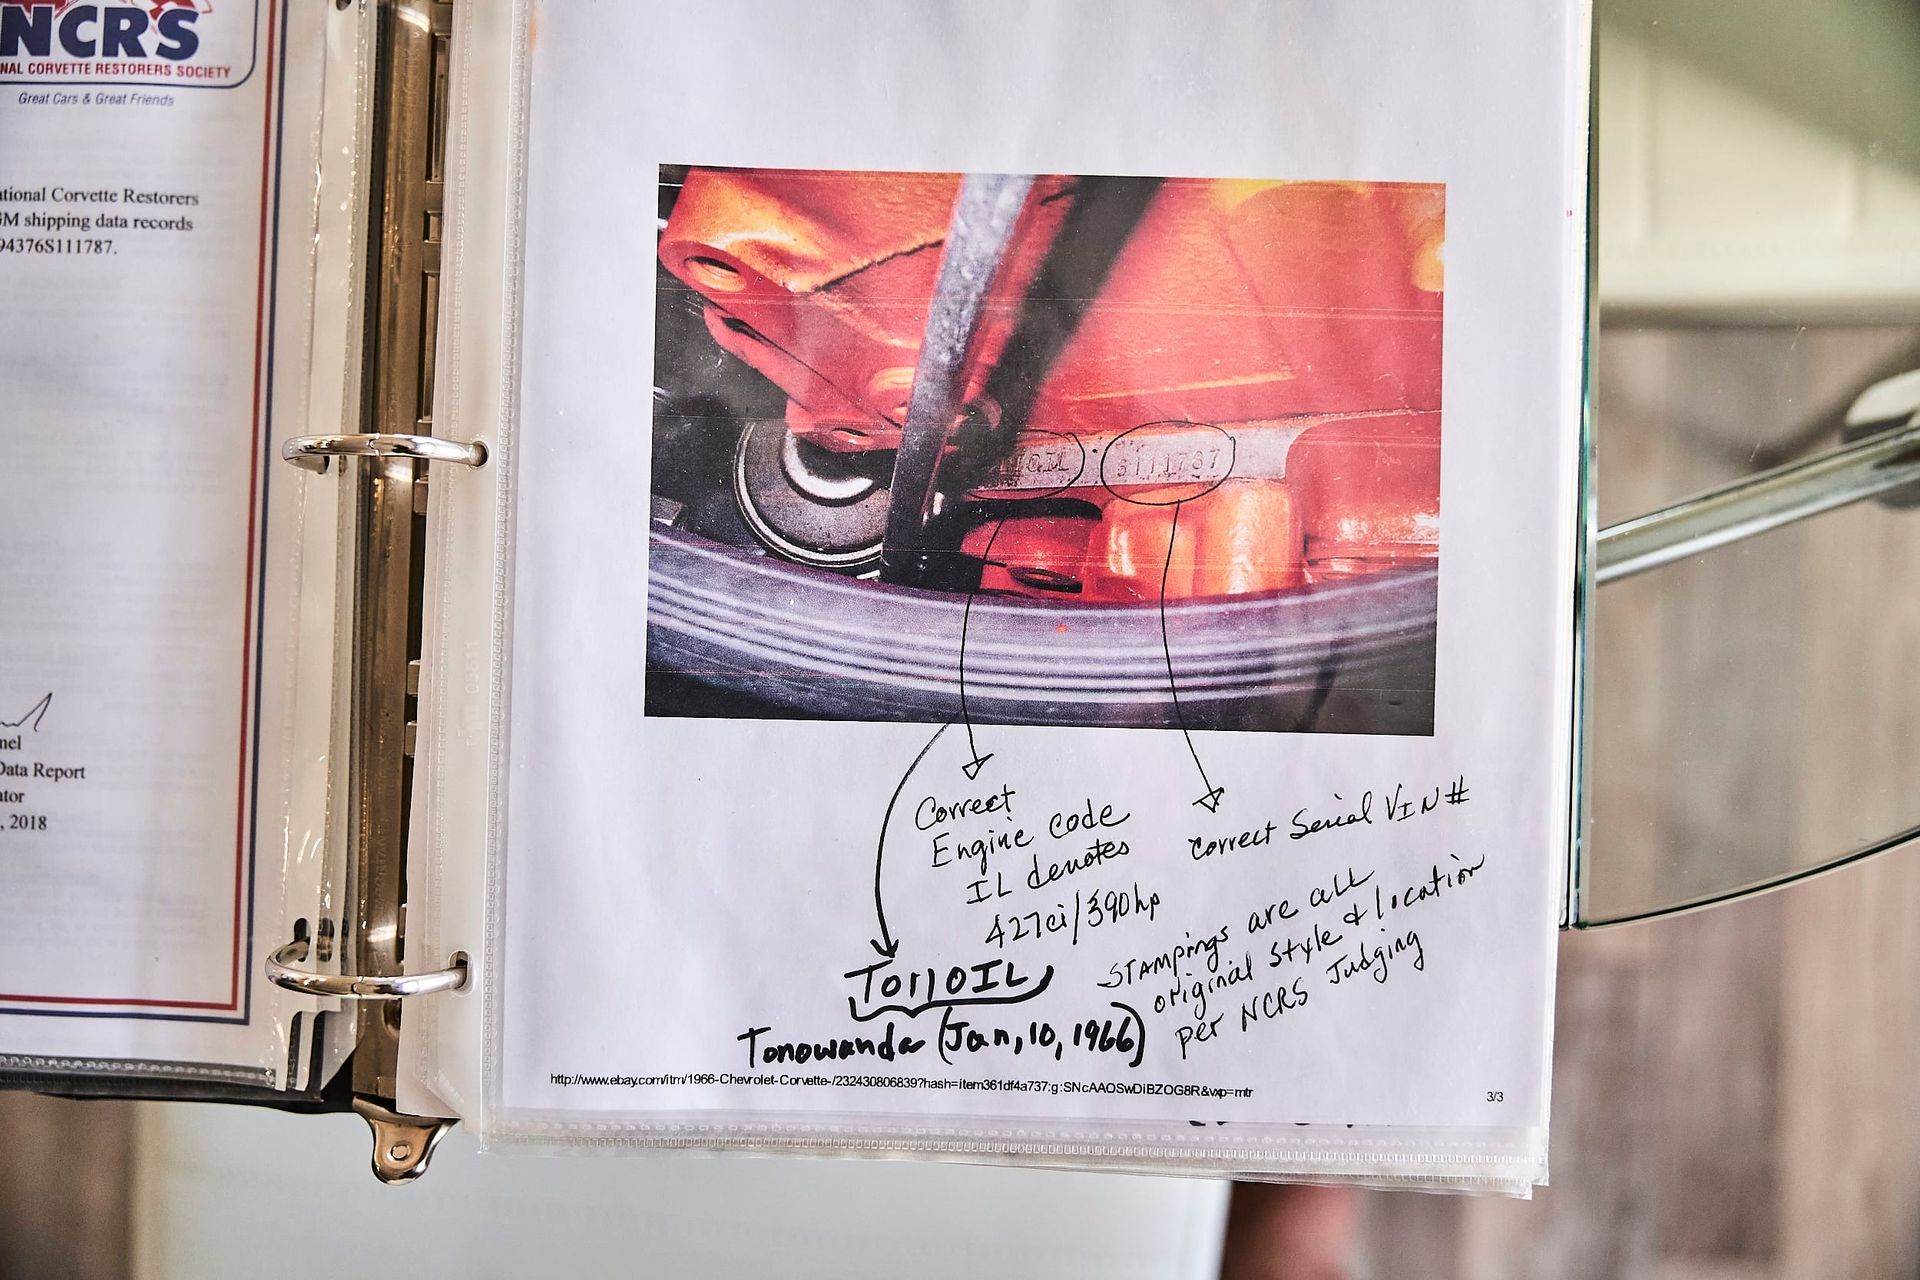 NCRS
NAL CORVETTE RESTORERS SOCIETY
Great Cars & Great Friends
ational Corvette Restorers
GM shipping data records
94376S111787.
nel
Data Report
ator
, 2018
OIL
S111787
Correct
Engine code
IL denotes
427ci/390hp
Correct Serial VIN #
STAMPings are all
original style & location
per NCRS Judging
T0110IL
Tonowanda (Jan, 10, 1966)
http://www.ebay.com/itm/1966-Chevrolet-Corvette-/232430806839?hash=item361df4a737:g:SNcAAOSwDiBZOG8R&vxp=mtr
3/3